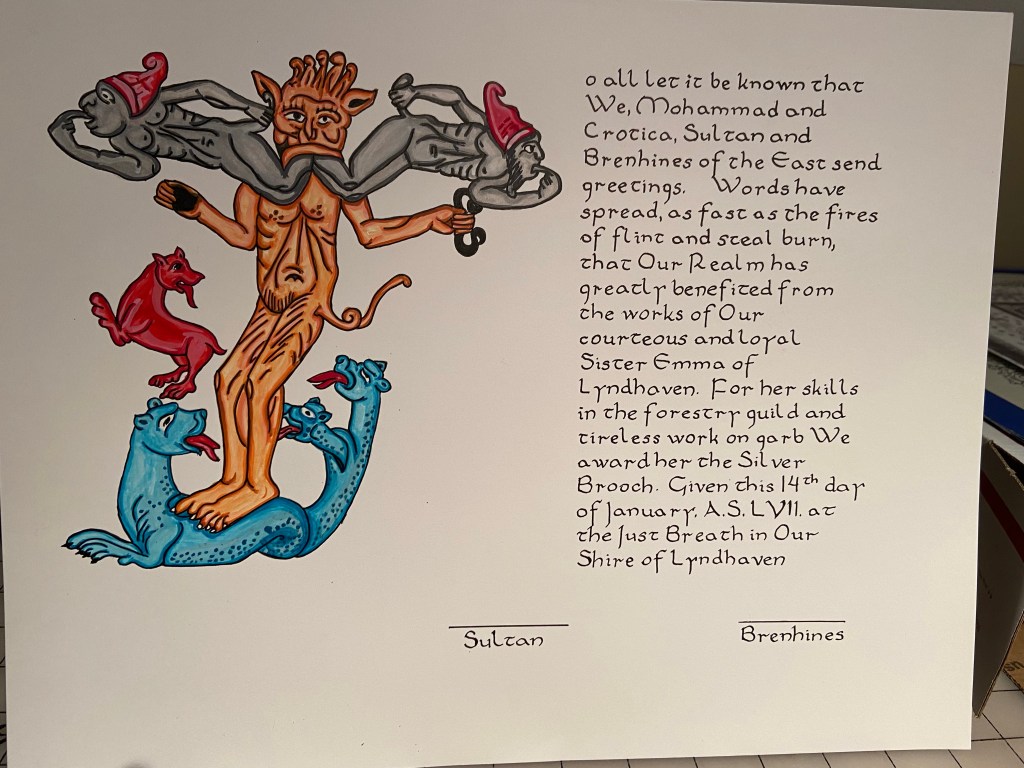 o all let it be known that
We, Mohammad and
Crotica, Sultan and
Brenhines of the East send
greetings. Words have
spread, as fast as the fires
of flint and steal burn,
that Our Realm has
greatly benefited from
the works of Our
courteous and loyal
Sister Emma of
Lyndhaven. For her skills
in the forestry guild and
tireless work on garb We
award her the Silver
Brooch. Given this 14th day
of January, A.S. LVII. at
the Just Breath in Our
Shire of Lyndhaven
Sultan
Brenhines